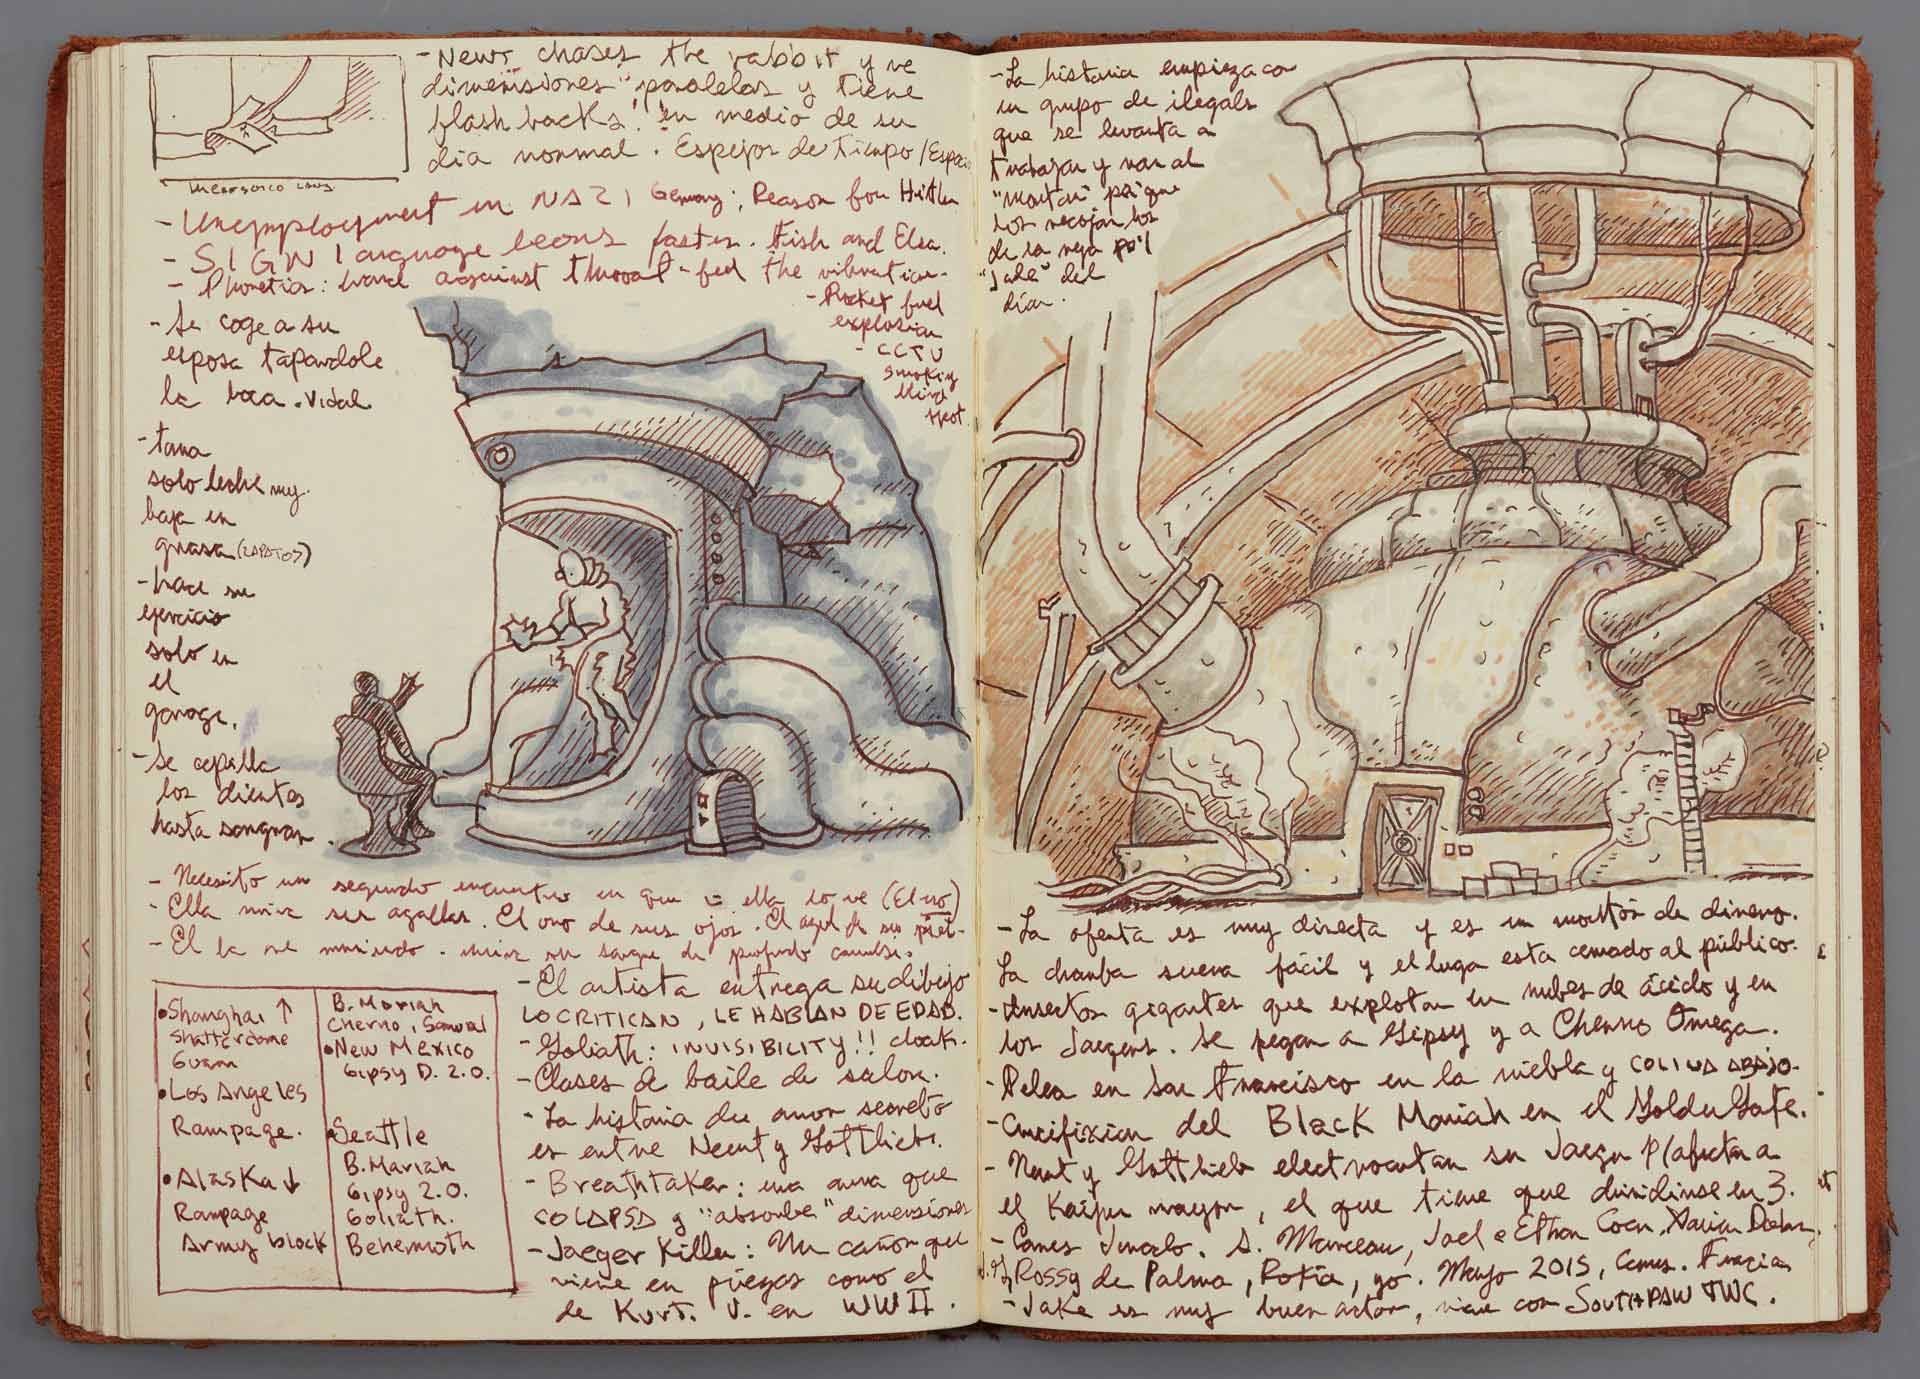 - Newt chases the rabbit y ve
dimensiones "paralelas y tiene
flashbacks" en medio de su
dia normal. Espejos de tiempo/Espacio
- Unemployment in NAZI Germany; Reason for Hitler
- SIGN language learns faster. Fish and Elsa.
- Phonetics: hand against throat - feel the vibration.
- Rocket fuel
explosion
- CCTV
smoking
blind
spot.
- Se coge a su
esposa tapandole
la boca. Vidal
- toma
solo leche muy
baja en
grasa (ZAPATOS)
- hace su
ejercicio
solo en
el
garage.
- Se cepilla
los dientes
hasta sangrar.
- Necesito un segundo encuentro en que ella lo ve (El no)
- Ella mira sus agallas. El oro de sus ojos. El azul de su piel.
- El la ve mirando.
• Shanghai ↑
Shatterdome
Guam
• Los Angeles
Rampage.
• Alaska ↓
Rampage
Army block
B. Moriah
Cherno, Samurai
• New Mexico
Gipsy D. 2.0.
• Seattle
B. Mariah
Gipsy 2.0.
Goliath.
Behemoth
- El artista entrega su dibujo
LO CRITICAN, LE HABLAN DE EDAD.
- Goliath: INVISIBILITY!! cloak.
- Clases de baile de salon.
- La historia de amor secreto
es entre Newt y Gottlieb.
- Breathtaker: una arma que
COLAPSA y "absorbe" dimensiones
- Jaeger Killer: Un cañon que
viene en piezas como el
de Kurt. V. en WWII.
- La historia empieza con
un grupo de ilegals
que se levanta a
trabajar y van al
"Monton" pa' que
los recojan los
de la reja pa'l
"jale" del
dia.
- La oferta es muy directa y es un monton de dinero.
La chamba suena fácil y el lugar esta cerrado al público.
- Insectos gigantes que explotan en nubes de ácido y en
los Jaegers. Se pegan a Gipsy y a Cherno Omega.
- Pelea en San Francisco en la niebla y COLINA ABAJO.
- Crucifixion del Black Moriah en el Golden Gate.
- Newt y Gottlieb electrocutan su Jaeger p/afectar a
el Kaiju mayor, el que tiene que dividirse en 3.
- Canes Jurado. S. Marceau, Joel e Ethan Coen, Xavier Dolan,
Rossy de Palma, Rokia, yo. Mayo 2015, Canes. Francia
- Jake es muy buen actor, viene con SOUTHPAW TWC.